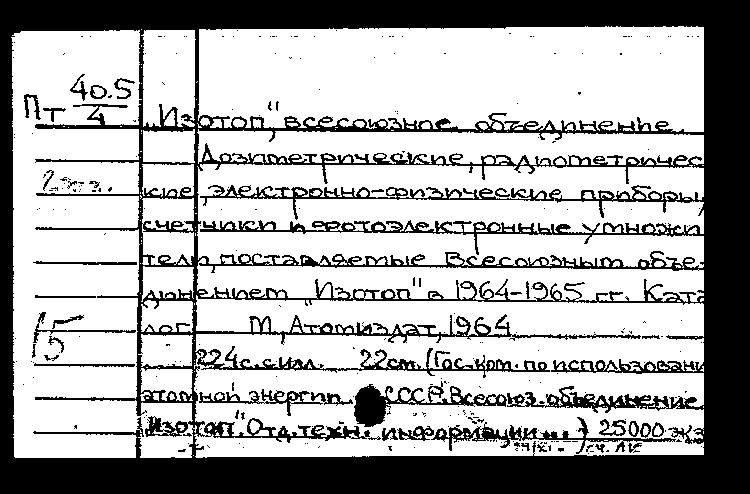 Пт 40.5/4
„Изотоп", всесоюзное объединение.
Дозиметрические, радиометричес
кие, электронно-физические приборы,
счетчики и фотоэлектронные умножи
тели, поставляемые Всесоюзным объе-
динением „Изотоп" в 1964-1965 гг. Ката
лог М., Атомиздат, 1964
15
224 с. с илл. 22 см. (Гос. ком. по использовани
атомной энергии СССР. Всесоюз. объединение
„Изотоп". Отд. техн. информации...) 25000 экз